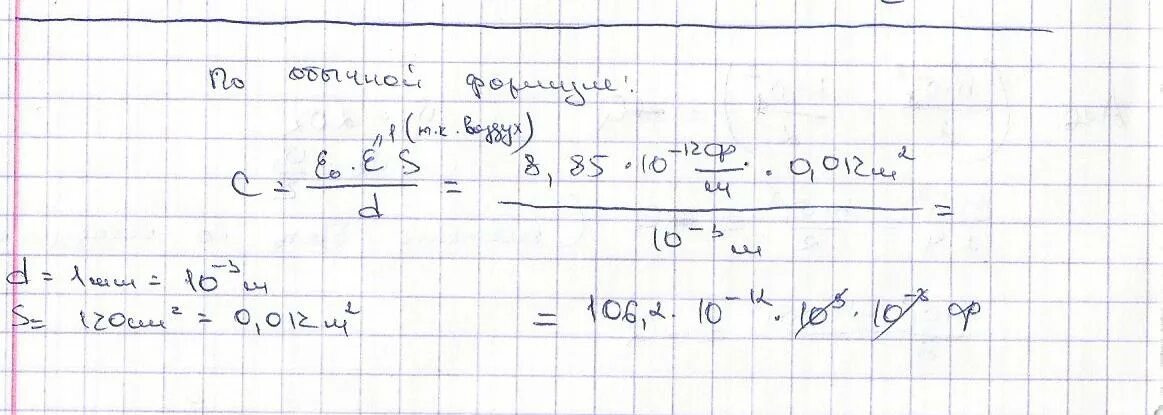 По обычной формуле:
C = ε₀·ε"¹ (т.к. воздух) S / d = 8,85·10⁻¹² ф/м · 0,012 м² / 10⁻³ м =
d = 1мм = 10⁻³ м
S = 120 см² = 0,012 м²
= 106,2·10⁻¹²·10³·10⁻³ ф